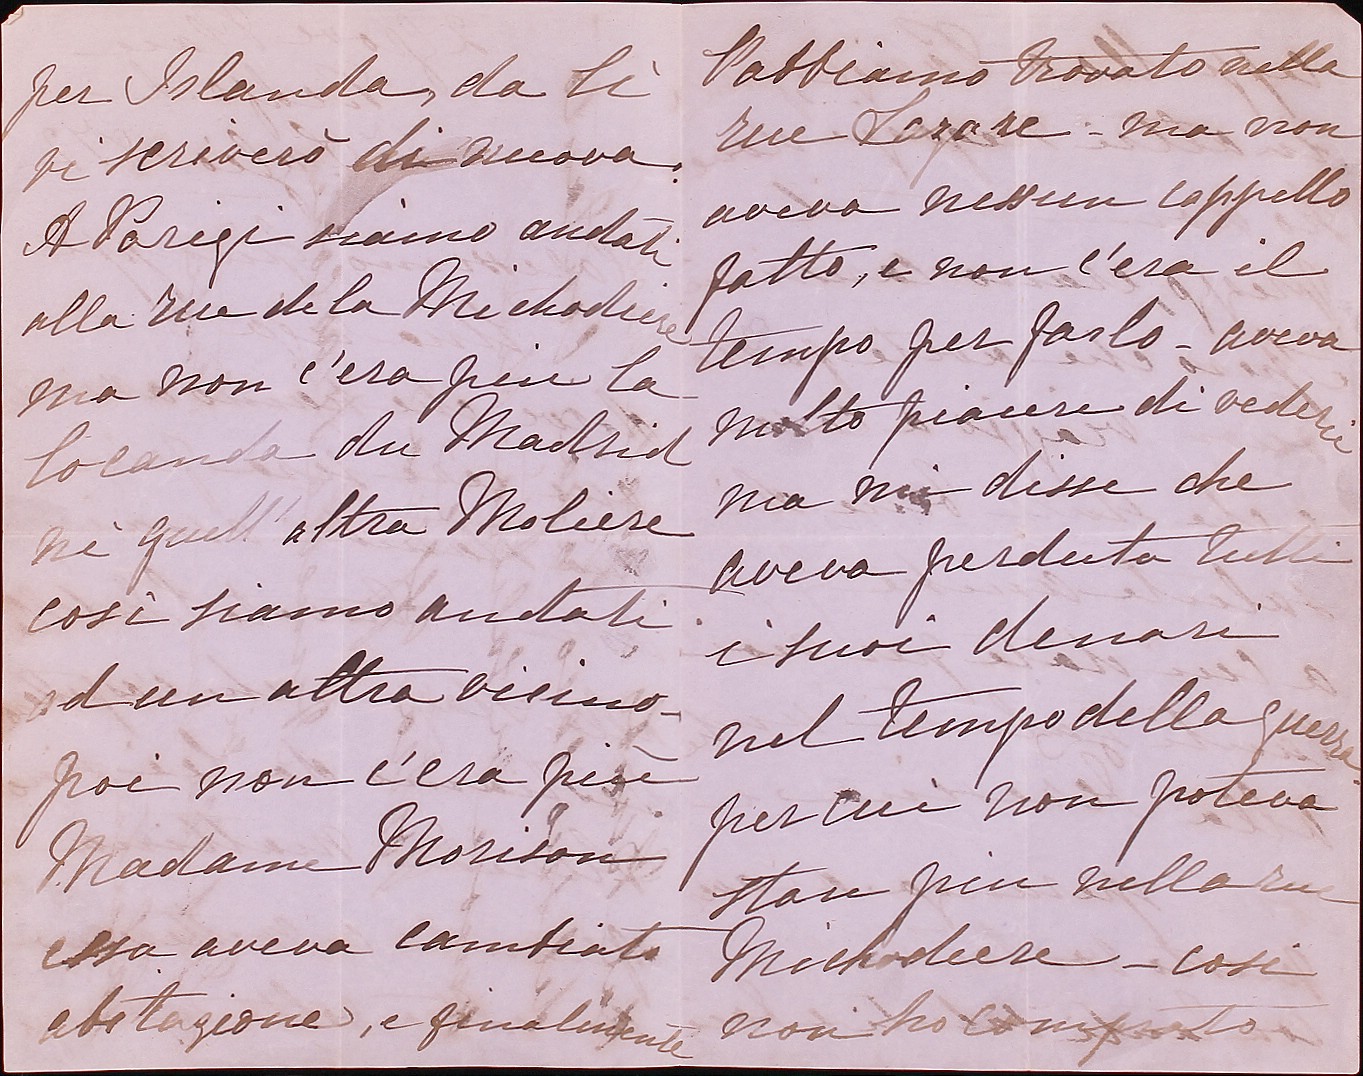 per Islanda, da lì
vi scriverò di nuova.
A Parigi siamo andati
alla rue de la Michodiere
ma non c'era piu la
locanda du Madrid
nè quell'altra Moliere
così siamo andati
ad un altra vicino-
poi non c'era più
Madame Morison
essa aveva cambiato
abitazione, e finalmente
l'abbiamo trovato nella
rue Lazare - ma non
aveva nessun cappello
fatto, e non c'era il
tempo per farlo - aveva
molto piacere di vederci
ma mi disse che
aveva perduto tutti
i suoi denari
nel tempo della guerra-
per cui non poteva
stare piu nella rue
Michodiere - così
non ho comprato